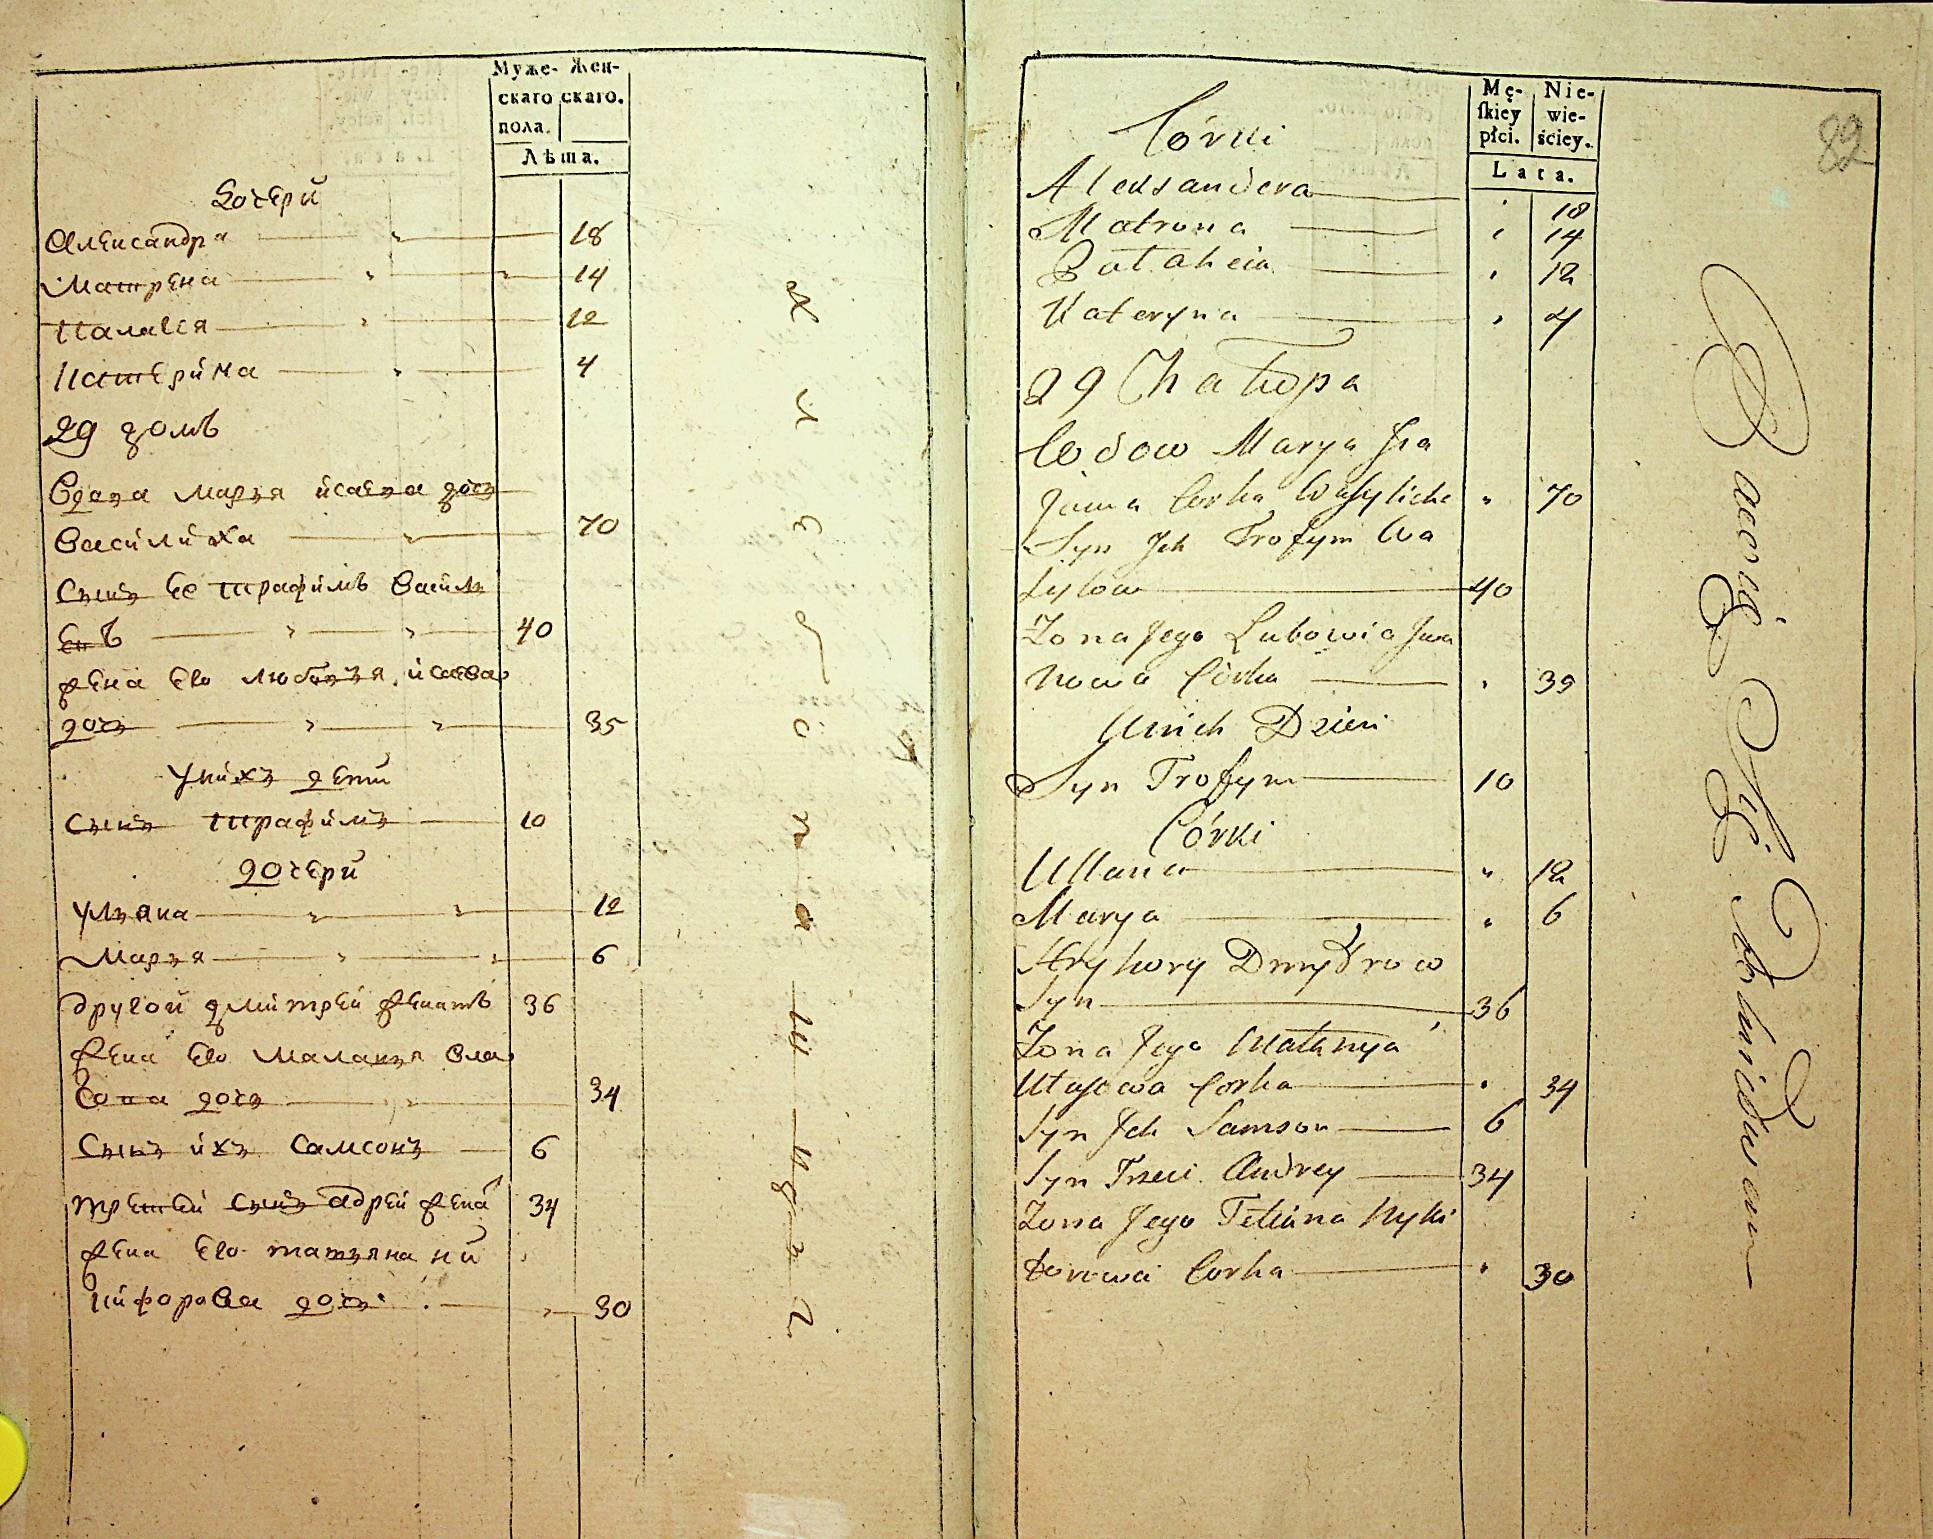 Муже- Жен-
скаго скаго.
пола.
Лѣта.
дочери
Александра 18
Матрена 14
Палагея 12
Катерина 4
29 домъ
Вдова марья исаева дочь
Василиха 70
Сынъ Ее трафимъ Василь
евъ 40
жена Его любовья исаева
дочь 35
у нихъ дети
Сынъ трафимъ 10
дочери
ульяна 12
Марья 6
другой дмитрей женатъ 36
жена Его Маланья Вла
сова дочь 34
Сынъ ихъ Самсонъ 6
третей сынъ адрей жена 34
жена Его татьяна ни
кифорова дочь 30
Mę- Nie-
skiey wie-
płci. ściey.
Lata.
82
Córki
Aleksandera 18
Matrona 14
Palaheia 12
Kateryna 4
29 Chałupa
Wdow Marya Isa
Jowa Corka Wasylicha 70
Syn Jeh Trofym Wa
sylow 40
Żona Jego Lubowia Jwa
nowa Córka 35
U nich Dzieci
Syn Trofym 10
Córki
Ullana 12
Marya 6
Hryhory Dmytrow
Syn 36
Żona Jego Matanya
Utasowa Corka 34
Syn Jch Samson 6
Syn Trzeci Andrey 34
Żona Jego Tetiana Nyki
forowa Corka 30